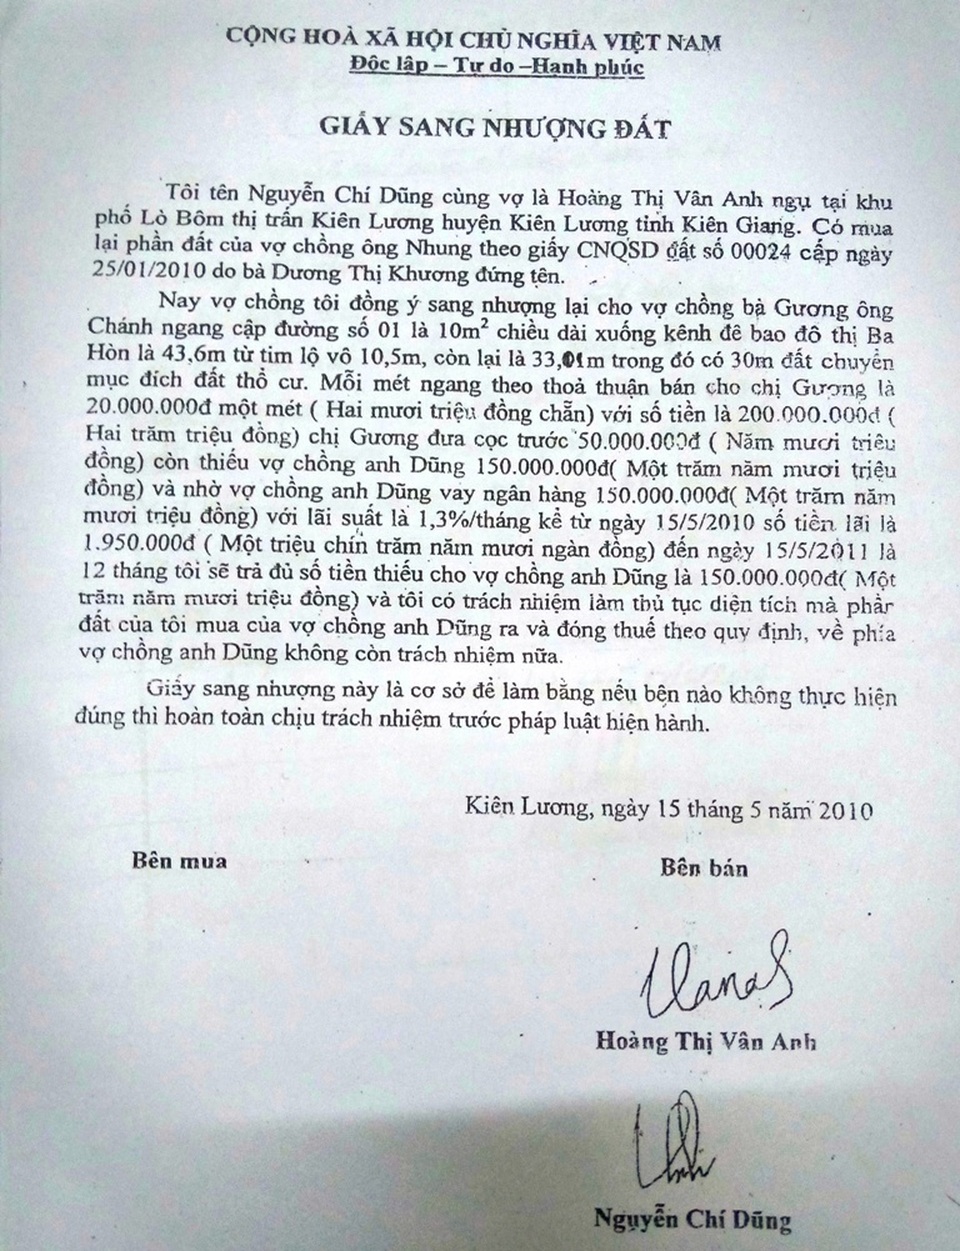 CỘNG HOÀ XÃ HỘI CHỦ NGHĨA VIỆT NAM
Độc lập – Tự do –Hạnh phúc
GIẤY SANG NHƯỢNG ĐẤT
Tôi tên Nguyễn Chí Dũng cùng vợ là Hoàng Thị Vân Anh ngụ tại khu
phố Lò Bôm thị trấn Kiên Lương huyện Kiên Lương tỉnh Kiên Giang. Có mua
lại phần đất của vợ chồng ông Nhung theo giấy CNQSD đất số 00024 cấp ngày
25/01/2010 do bà Dương Thị Khương đứng tên.
Nay vợ chồng tôi đồng ý sang nhượng lại cho vợ chồng bà Gương ông
Chánh ngang cập đường số 01 là 10m² chiều dài xuống kênh đê bao đô thị Ba
Hòn là 43,6m từ tim lộ vô 10,5m, còn lại là 33,01m trong đó có 30m đất chuyển
mục đích đất thổ cư. Mỗi mét ngang theo thoả thuận bán cho chị Gương là
20.000.000đ một mét ( Hai mươi triệu đồng chẵn) với số tiền là 200.000.000đ (
Hai trăm triệu đồng) chị Gương đưa cọc trước 50.000.000đ ( Năm mươi triêu
đồng) còn thiếu vợ chồng anh Dũng 150.000.000đ( Một trăm năm mươi triệu
đồng) và nhờ vợ chồng anh Dũng vay ngân hàng 150.000.000đ( Một trăm năm
mươi triệu đồng) với lãi suất là 1,3%/tháng kể từ ngày 15/5/2010 số tiền lãi là
1.950.000đ ( Một triệu chín trăm năm mươi ngàn đồng) đến ngày 15/5/2011 là
12 tháng tôi sẽ trả đủ số tiền thiếu cho vợ chồng anh Dũng là 150.000.000đ( Một
trăm năm mươi triệu đồng) và tôi có trách nhiệm làm thủ tục diện tích mà phần
đất của tôi mua của vợ chồng anh Dũng ra và đóng thuế theo quy định, về phía
vợ chồng anh Dũng không còn trách nhiệm nữa.
Giấy sang nhượng này là cơ sở để làm bằng nếu bên nào không thực hiện
đúng thì hoàn toàn chịu trách nhiệm trước pháp luật hiện hành.
Kiên Lương, ngày 15 tháng 5 năm 2010
Bên mua
Bên bán
Hoàng Thị Vân Anh
Nguyễn Chí Dũng